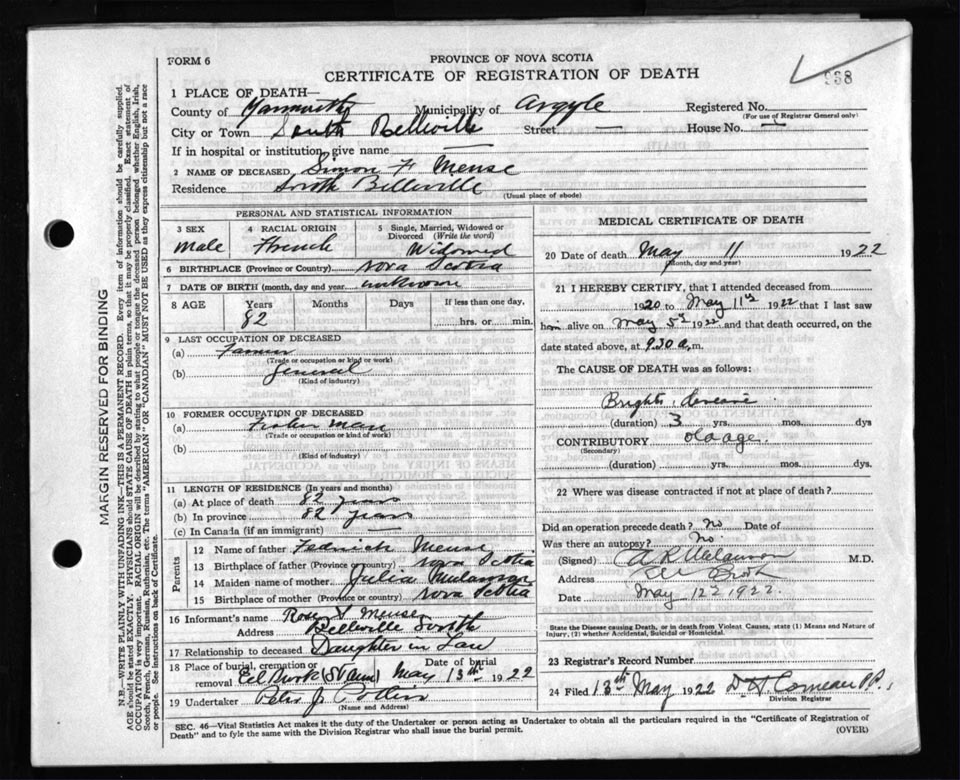 FORM 6
PROVINCE OF NOVA SCOTIA
CERTIFICATE OF REGISTRATION OF DEATH
1 PLACE OF DEATH—
County of Yarmouth Municipality of Argyle Registered No.
(For use of Registrar General only)
City or Town South Belleville Street — House No. —
If in hospital or institution, give name —
2 NAME OF DECEASED Simon F Meuse
Residence South Belleville
(Usual place of abode)
PERSONAL AND STATISTICAL INFORMATION
3 SEX 4 RACIAL ORIGIN 5 Single, Married, Widowed or Divorced (Write the word)
Male French Widowed
6 BIRTHPLACE (Province or Country) Nova Scotia
7 DATE OF BIRTH (month, day and year) unknown
8 AGE Years Months Days If less than one day,
82 hrs. or min.
9 LAST OCCUPATION OF DECEASED
(a) Farmer
(Trade or occupation or kind or work)
(b) General
(Kind of industry)
10 FORMER OCCUPATION OF DECEASED
(a) Fisher Man
(Trade or occupation or kind of work)
(b)
(Kind of industry)
11 LENGTH OF RESIDENCE (In years and months)
(a) At place of death 82 years
(b) In province 82 years
(c) In Canada (if an immigrant) —
Parents
12 Name of father Meuse
13 Birthplace of father (Province or country) Nova Scotia
14 Maiden name of mother Julia
15 Birthplace of mother (Province or country) Nova Scotia
16 Informant's name Rose Meuse
Address Bellville South
17 Relationship to deceased Daughter in Law
18 Place of burial, cremation or removal Eel Brook (St Ann) Date of burial May 13th 1922
19 Undertaker Peter J Pottier
(Name and Address)
MEDICAL CERTIFICATE OF DEATH
20 Date of death May 11 1922
(Month, day and year)
21 I HEREBY CERTIFY, that I attended deceased from
1920 to May 11th 1922 that I last saw
him alive on May 5th 1922 and that death occurred, on
date stated above, at 9.30 a.m.
The CAUSE OF DEATH was as follows:
Brights disease
(duration) 3 yrs. mos. dys
CONTRIBUTORY old age.
(Secondary)
(duration) yrs. mos. dys.
22 Where was disease contracted if not at place of death?
Did an operation precede death? No Date of
Was there an autopsy? No.
(Signed) A. R. Melanson M.D.
Address Eel Brook
Date May 12 1922.
State the Disease causing Death, or in death from Violent Causes, state (1) Means and Nature of Injury, (2) whether Accidental, Suicidal or Homicidal.
23 Registrar's Record Number
24 Filed 13th May 1922 D H Comeau P.P.
Division Registrar
SEC. 46—Vital Statistics Act makes it the duty of the Undertaker or person acting as Undertaker to obtain all the particulars required in the "Certificate of Registration of
Death" and to fyle the same with the Division Registrar who shall issue the burial permit.
(OVER)
MARGIN RESERVED FOR BINDING
N.B.—WRITE PLAINLY WITH UNFADING INK—THIS IS A PERMANENT RECORD. Every item of information should be carefully supplied.
AGE should be stated EXACTLY. PHYSICIANS should STATE CAUSE OF DEATH in plain terms, so that it may be properly classified. Exact statement of
OCCUPATION is very important. RACIAL ORIGIN will be described by stating to what people or tongue the deceased person belonged whether English, Irish,
Scotch, French, German, Russian, Ruthenian, etc. The terms "AMERICAN" OR "CANADIAN" MUST NOT BE USED as they express citizenship but not a race
or people. See instructions on back of Certificate.